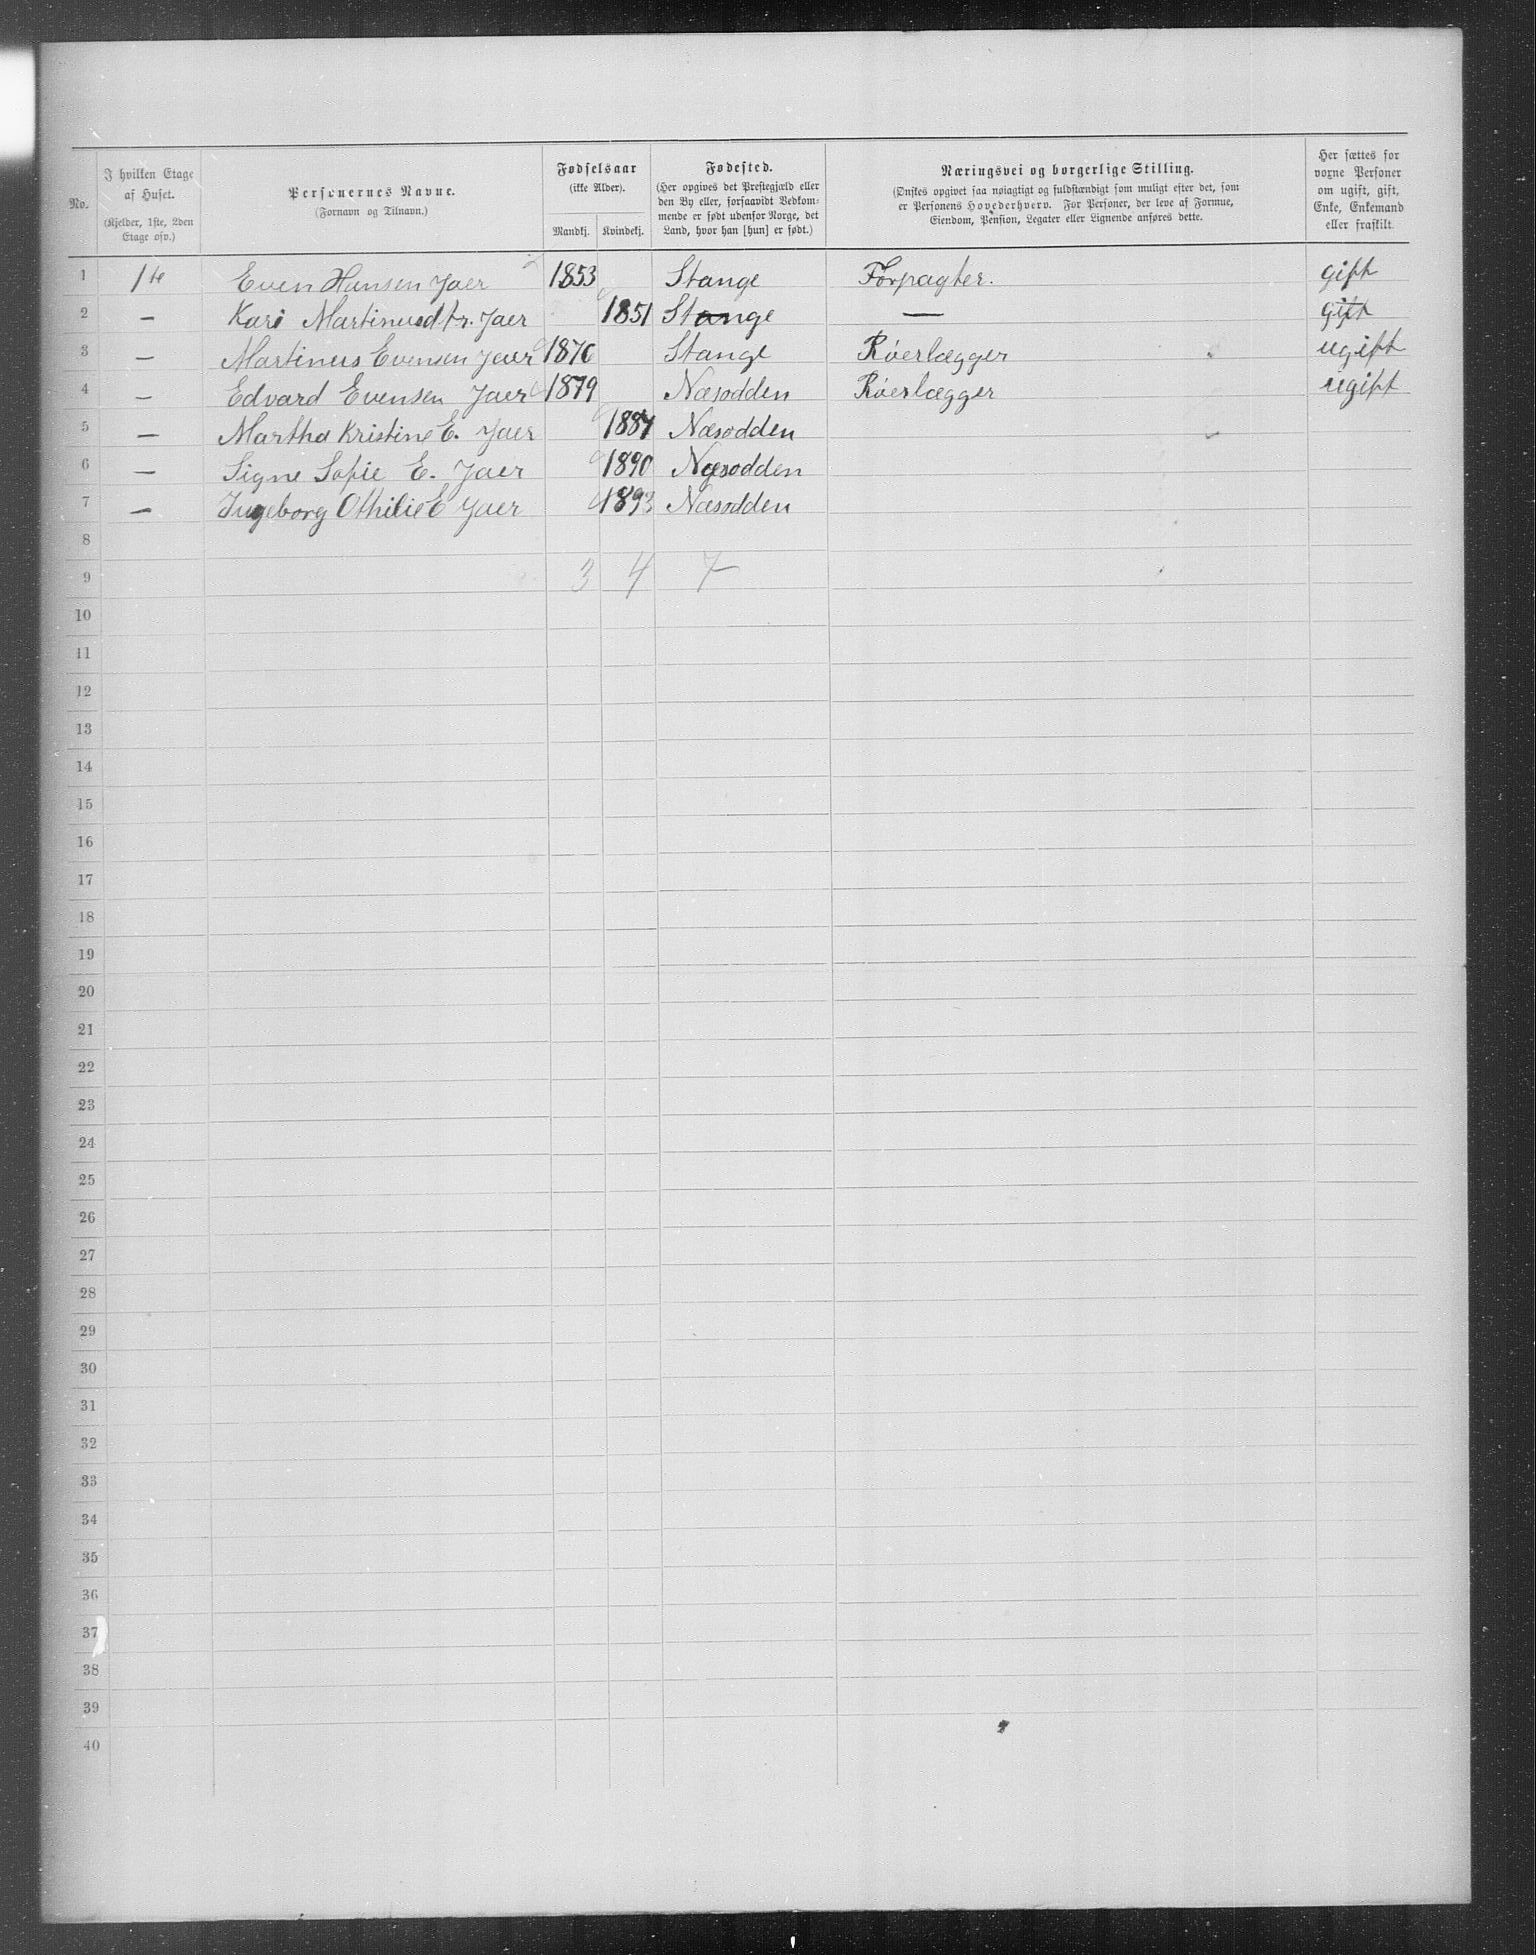 No. | I hvilken Etage af Huset. (Kjelder, 1ste, 2den Etage osv.) | Personernes Navne. (Fornavn og Tilnavn.) | Fødselsaar (ikke Alder). Mandkj. | Kvindekj. | Fødested. (Her opgives det Præstegjæld eller den By eller, forsaavidt Vedkommende er født udenfor Norge, det Land, hvor han [hun] er født.) | Næringsvei og borgerlige Stilling. (Ønskes opgivet saa nøiagtigt og fuldstændigt som muligt efter det, som er Personens Hovederhverv. For Personer, der leve af Formue, Eiendom, Pension, Legater eller Lignende anføres dette. | Her sættes for voxne Personer om ugift, gift, Enke, Enkemand eller fraskilt.
1 1ste Even Hansen Jaer 1853 Stange Forpagter. gift
2 — Kari Martinusdtr. Jaer 1851 Stange — gift
3 — Martinus Evensen Jaer 1876 Stange Rúerlægger ugift
4 — Edvard Evensen Jaer 1879 Næsodden Rúerlægger ugift
5 — Martha Kristine E. Jaer 1887 Næsodden
6 — Signe Sofie E. Jaer 1890 Næsodden
7 — Ingeborg Othilie E Jaer 1893 Næsodden
8
9 3 4 7
10
11
12
13
14
15
16
17
18
19
20
21
22
23
24
25
26
27
28
29
30
31
32
33
34
35
36
37
38
39
40